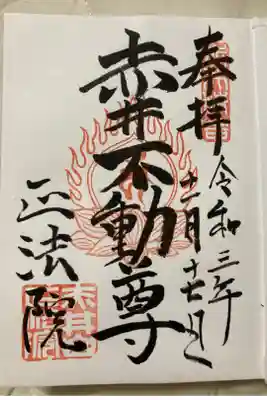 奉拝
令和三年
十一月十七日
赤井不動尊
正法院